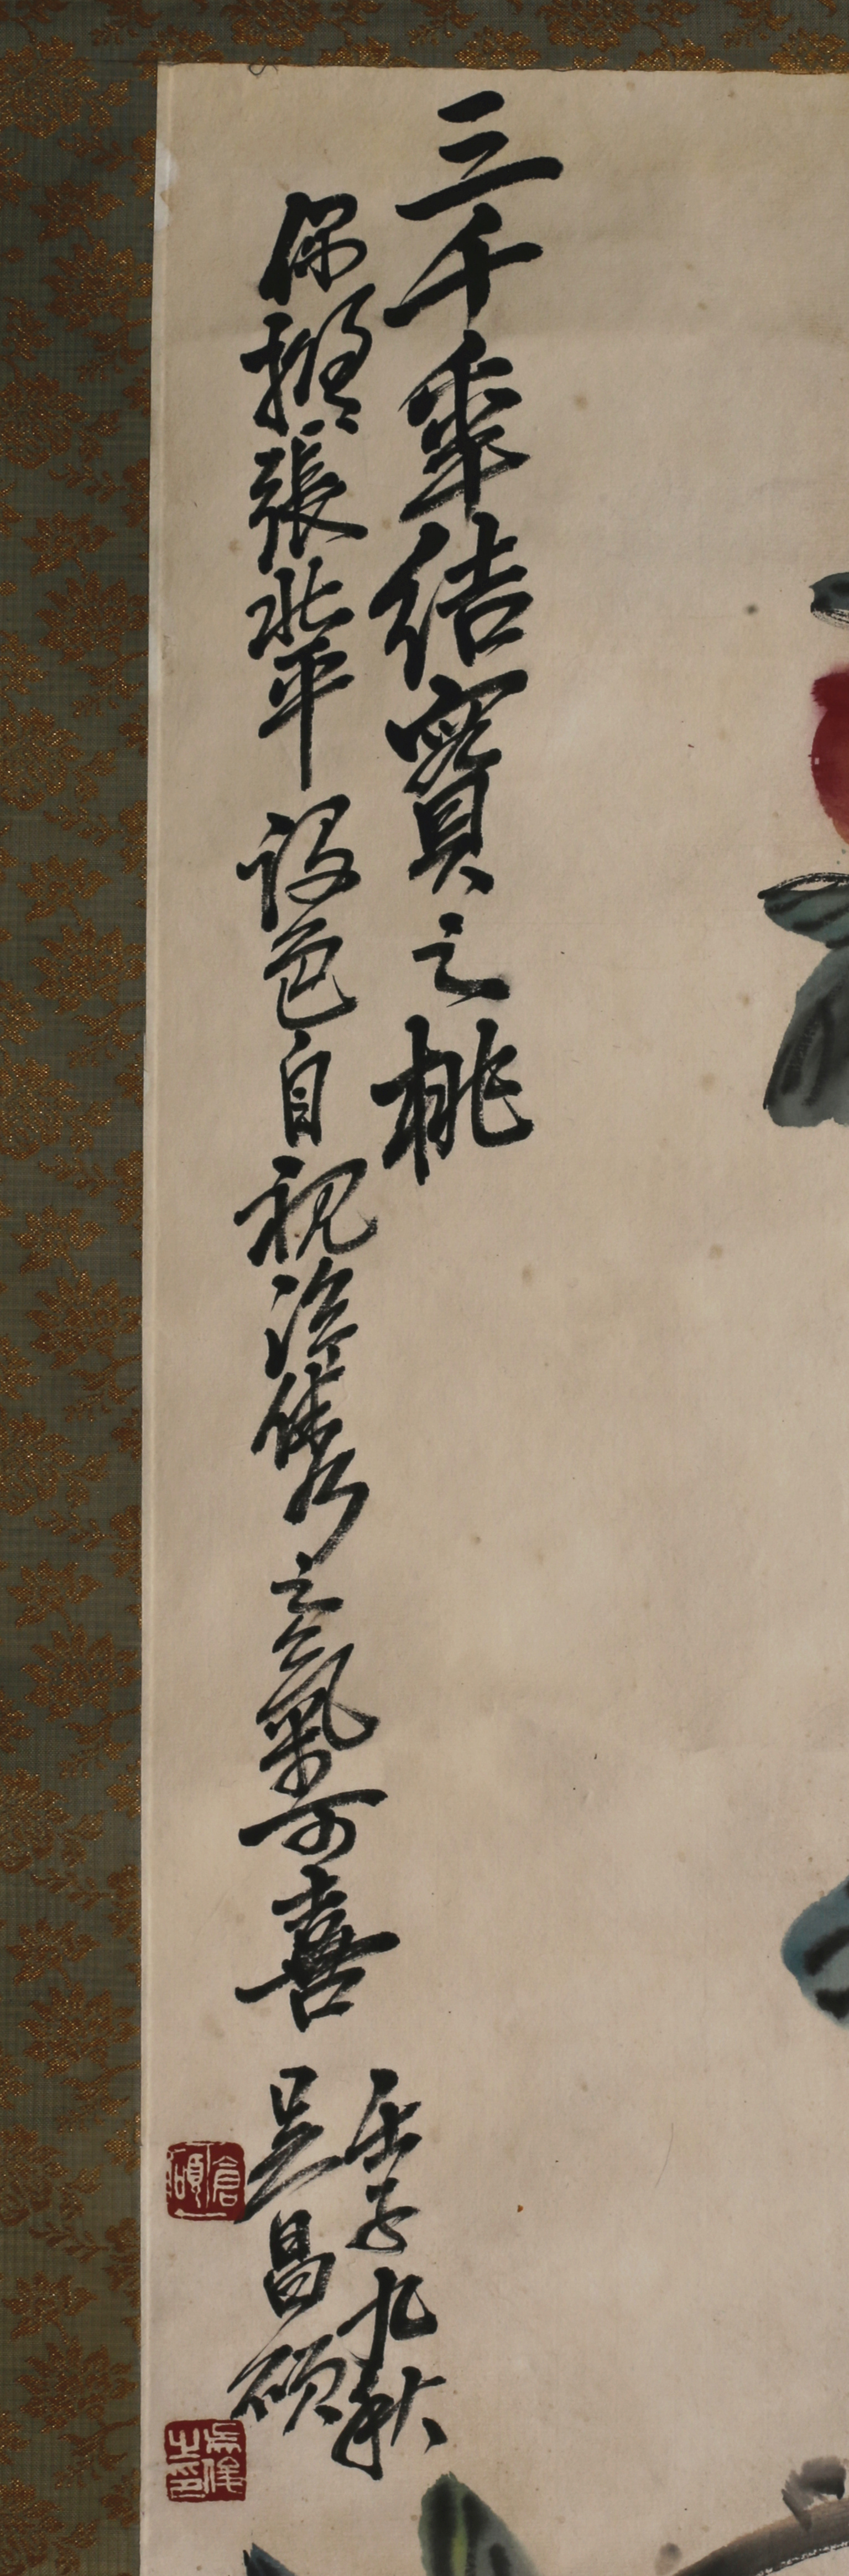 三千年結實之桃
保擬張北平設色自視㳂之氣可喜
壬子九秋
吴昌碩
倉碩
吴俊之印